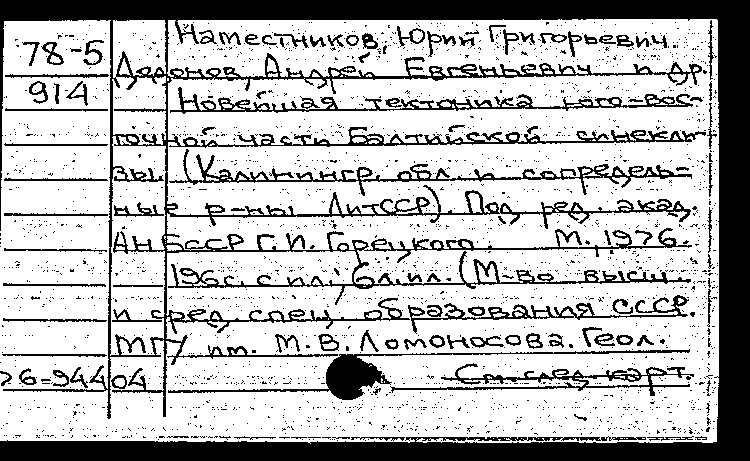 78-5 Наместников, Юрий Григорьевич.
Додонов, Андрей Евгеньевич и др.
914 Новейшая тектоника юго-вос-
точной части Балтийской синекли-
зы. (Калинингр. обл. и сопредель-
ные р-ны ЛитССР). Под ред. акад.
АН БССР Г. И. Горецкого. М., 1976.
196 с. с ил.; 6 л. ил. (М-во высш.
и сред. спец. образования СССР.
МГУ им. М. В. Ломоносова. Геол.
76-944 04 См. след. карт.